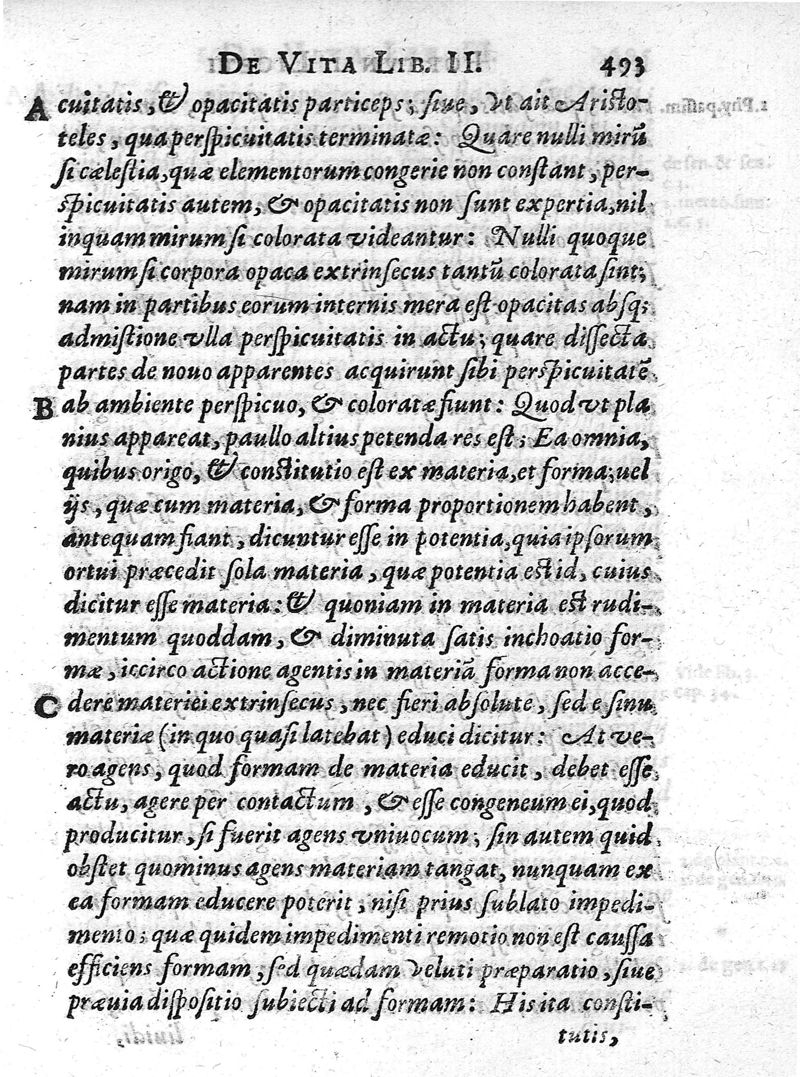 DE VITA LIB. II. 493
A cuitatis, & opacitatis particeps; siue, vt ait Aristo-
teles, qua perspicuitatis terminatæ: Quare nulli mirũ
si cælestia, quæ elementorum congerie non constant, per-
spicuitatis autem, & opacitatis non sunt expertia, nil
inquam mirum si colorata videantur: Nulli quoque
mirum si corpora opaca extrinsecus tantũ colorata sint;
nam in partibus eorum internis mera est opacitas absq;
admistione vlla perspicuitatis in actu; quare dissecta
partes de nouo apparentes acquirunt sibi perspicuitatẽ
B ab ambiente perspicuo, & coloratæ fiunt: Quod vt pla
nius appareat, paullo altius petenda res est; Ea omnia,
quibus origo, & constitutio est ex materia, et forma; uel
ijs, quæ cum materia, & forma proportionem habent,
antequam fiant, dicuntur esse in potentia, quia ipsorum
ortui præcedit sola materia, quæ potentia est id, cuius
dicitur esse materia: & quoniam in materia est rudi-
mentum quoddam, & diminuta satis inchoatio for-
mæ, iccirco actione agentis in materiã forma non acce-
C dere materiei extrinsecus, nec fieri absolute, sed e sinu
materiæ (in quo quasi latebat) educi dicitur: At ve-
ro agens, quod formam de materia educit, debet esse
actu, agere per contactum, & esse congeneum ei, quod
producitur, si fuerit agens vniuocum; sin autem quid
obstet quominus agens materiam tangat, nunquam ex
ea formam educere poterit, nisi prius sublato impedi-
mento; quæ quidem impedimenti remotio non est caussa
efficiens formam, sed quædam veluti præparatio, siue
præuia dispositio subiecti ad formam: His ita consti-
tutis,